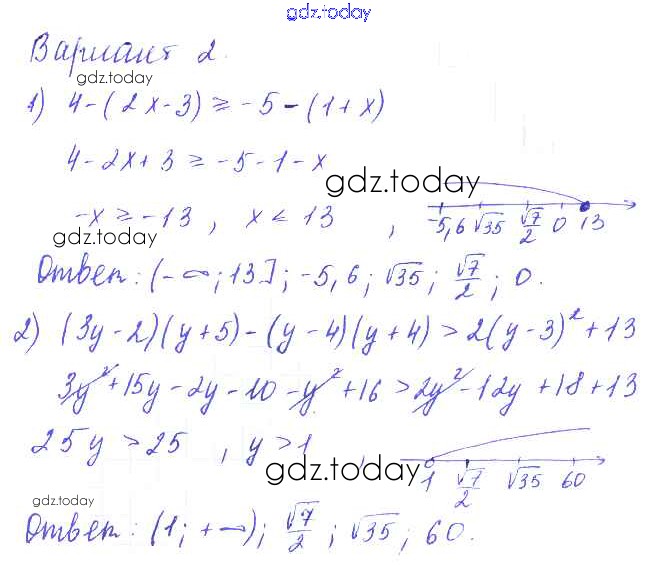 gdz.today
Вариант 2.
gdz.today
1) 4-(2x-3) ≥ -5-(1+x)
4-2x+3 ≥ -5-1-x
gdz.today
-x ≥ -13, x ≤ 13, -5,6 √35 √7/2 0 13
gdz.today
Ответ: (-∞; 13]; -5,6; √35; √7/2; 0.
2) (3y-2)(y+5)-(y-4)(y+4) > 2(y-3)²+13
3y²+15y-2y-10-y²+16 > 2y²-12y+18+13
25y > 25, y > 1, 1 √7/2 √35 60
gdz.today
gdz.today
Ответ: (1; +∞); √7/2; √35; 60.